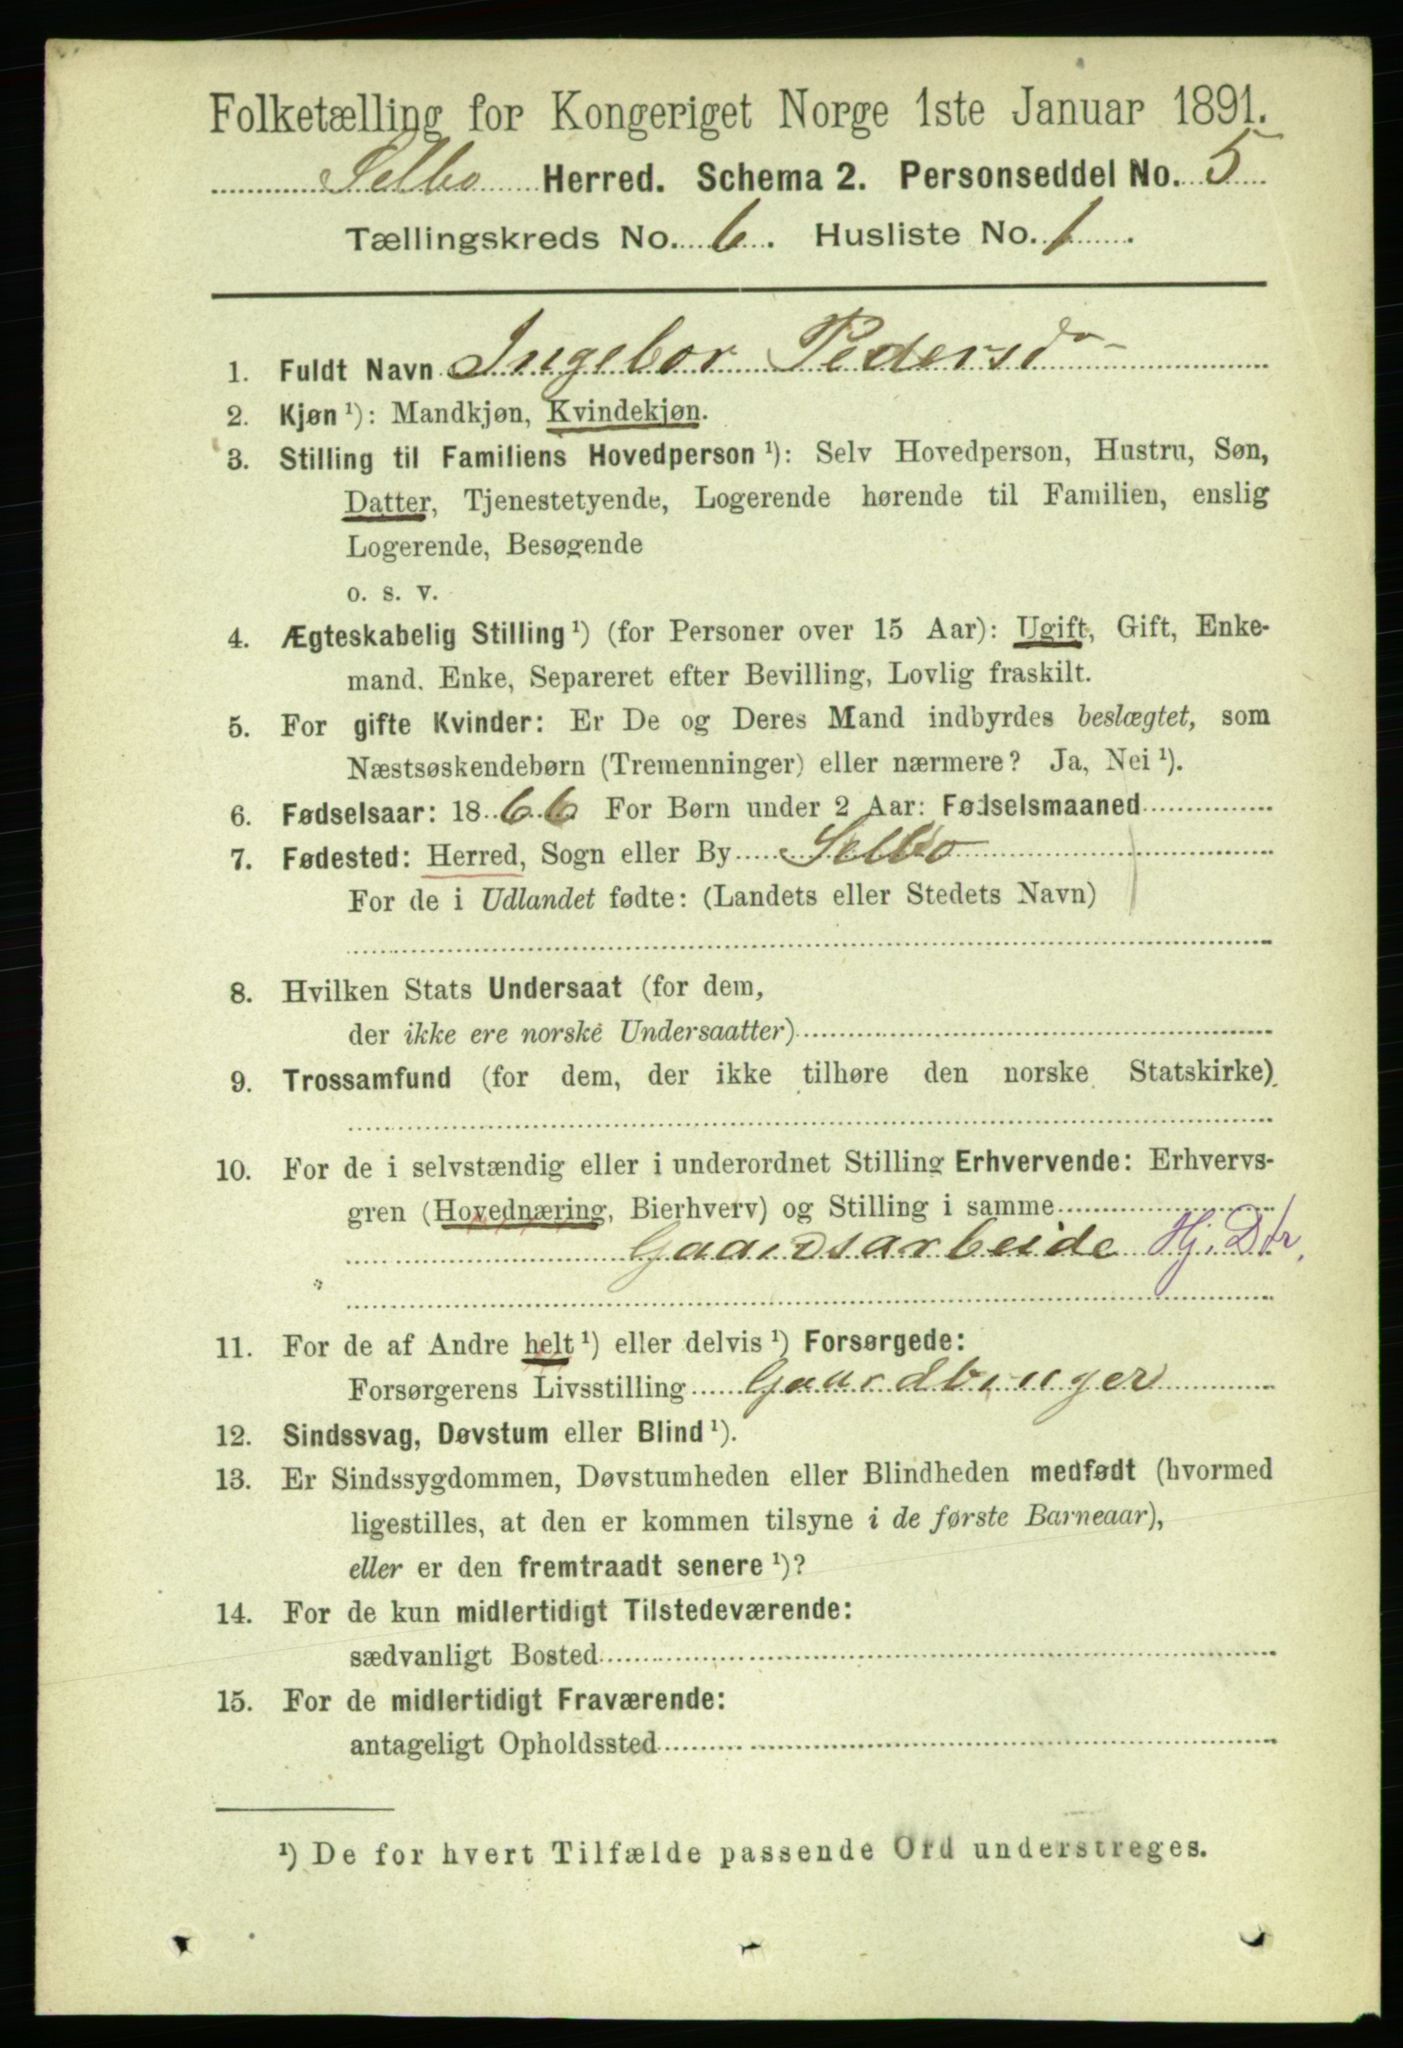 Folketælling for Kongeriget Norge 1ste Januar 1891.
Selbo Herred. Schema 2. Personseddel No. 5
Tællingskreds No. 6. Husliste No. 1.
1. Fuldt Navn Ingebor Pedersdr
2. Kjøn ¹): Mandkjøn, Kvindekjøn.
3. Stilling til Familiens Hovedperson ¹): Selv Hovedperson, Hustru, Søn,
Datter, Tjenestetyende, Logerende hørende til Familien, enslig
Logerende, Besøgende
o. s. v.
4. Ægteskabelig Stilling ¹) (for Personer over 15 Aar): Ugift, Gift, Enke-
mand, Enke, Separeret efter Bevilling, Lovlig fraskilt.
5. For gifte Kvinder: Er De og Deres Mand indbyrdes beslægtet, som
Næstsøskendebørn (Tremenninger) eller nærmere? Ja, Nei ¹).
6. Fødselsaar: 1866 For Børn under 2 Aar: Fødselsmaaned
7. Fødested: Herred, Sogn eller By Selbo
For de i Udlandet fødte: (Landets eller Stedets Navn)
8. Hvilken Stats Undersaat (for dem,
der ikke ere norske Undersaatter)
9. Trossamfund (for dem, der ikke tilhøre den norske Statskirke)
10. For de i selvstændig eller i underordnet Stilling Erhvervende: Erhvervs-
gren (Hovednæring, Bierhverv) og Stilling i samme
Gaardsarbeide Hj. Dtr.
11. For de af Andre helt ¹) eller delvis ¹) Forsørgede:
Forsørgerens Livsstilling Gaardbruger
12. Sindssvag, Døvstum eller Blind ¹).
13. Er Sindssygdommen, Døvstumheden eller Blindheden medfødt (hvormed
ligestilles, at den er kommen tilsyne i de første Barneaar),
eller er den fremtraadt senere ¹)?
14. For de kun midlertidigt Tilstedeværende:
sædvanligt Bosted
15. For de midlertidigt Fraværende:
antageligt Opholdssted
¹) De for hvert Tilfælde passende Ord understreges.